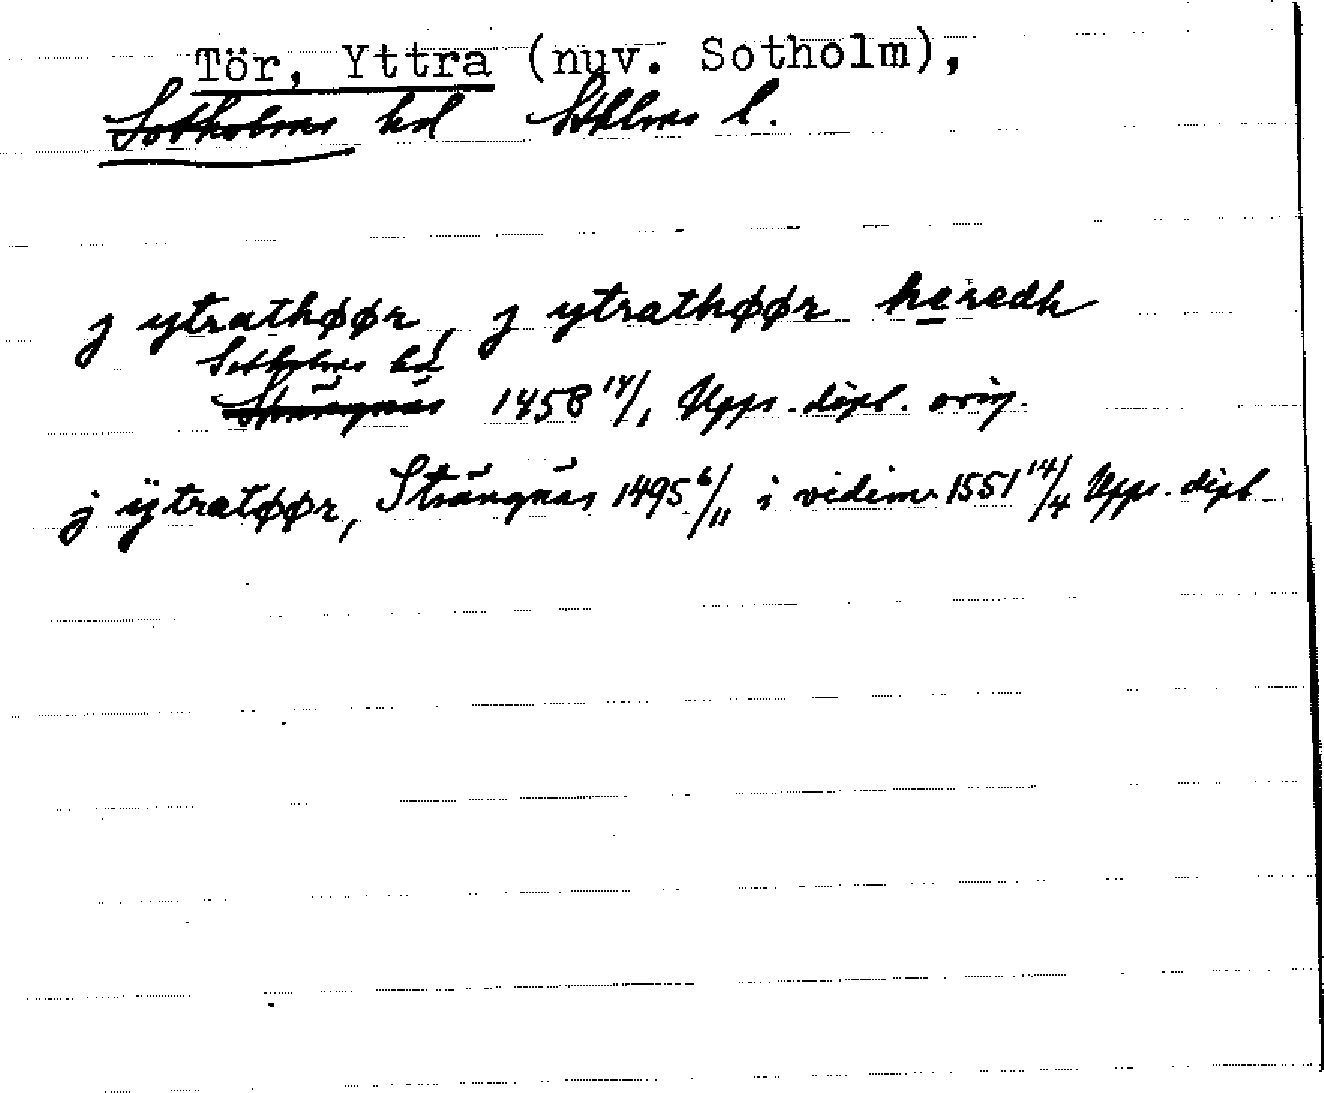 Tör, Yttra (nuv. Sotholm),
Sotholms hd Sthlms l.
j ytrathøør, j ytrathøør heredh
Sotholms hd
Strängnäs 1458 14/1 Upps. dipl. orig.
j ÿtratøør, Strängnäs 1495 6/11 i vidim. 1551 14/4 Upps. dipl